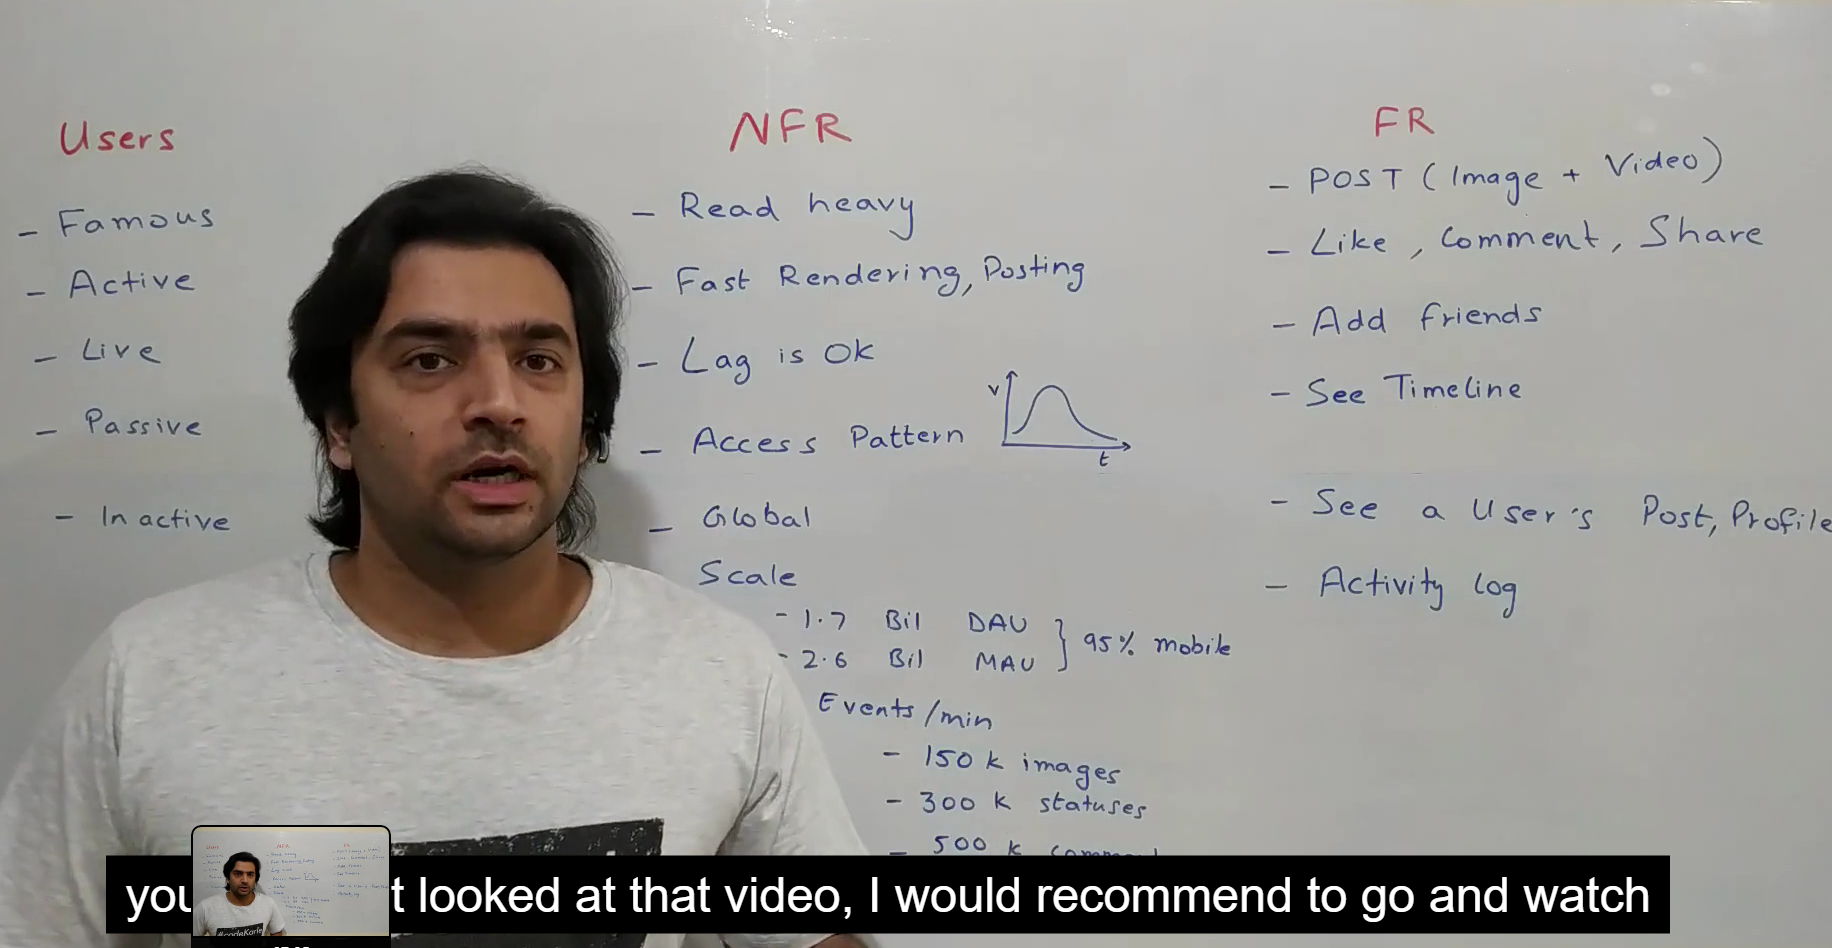 Users
- Famous
- Active
- Live
- Passive
- Inactive
NFR
- Read heavy
- Fast Rendering, Posting
- Lag is OK
- Access Pattern
V
t
- Global
Scale
- 1.7 Bil DAU } 95% mobile
- 2.6 Bil MAU
Events/min
- 150 k images
- 300 k statuses
- 500 k
FR
- POST (Image + Video)
- Like, Comment, Share
- Add friends
- See Timeline
- See a User's Post, Profile
- Activity log
looked at that video, I would recommend to go and watch